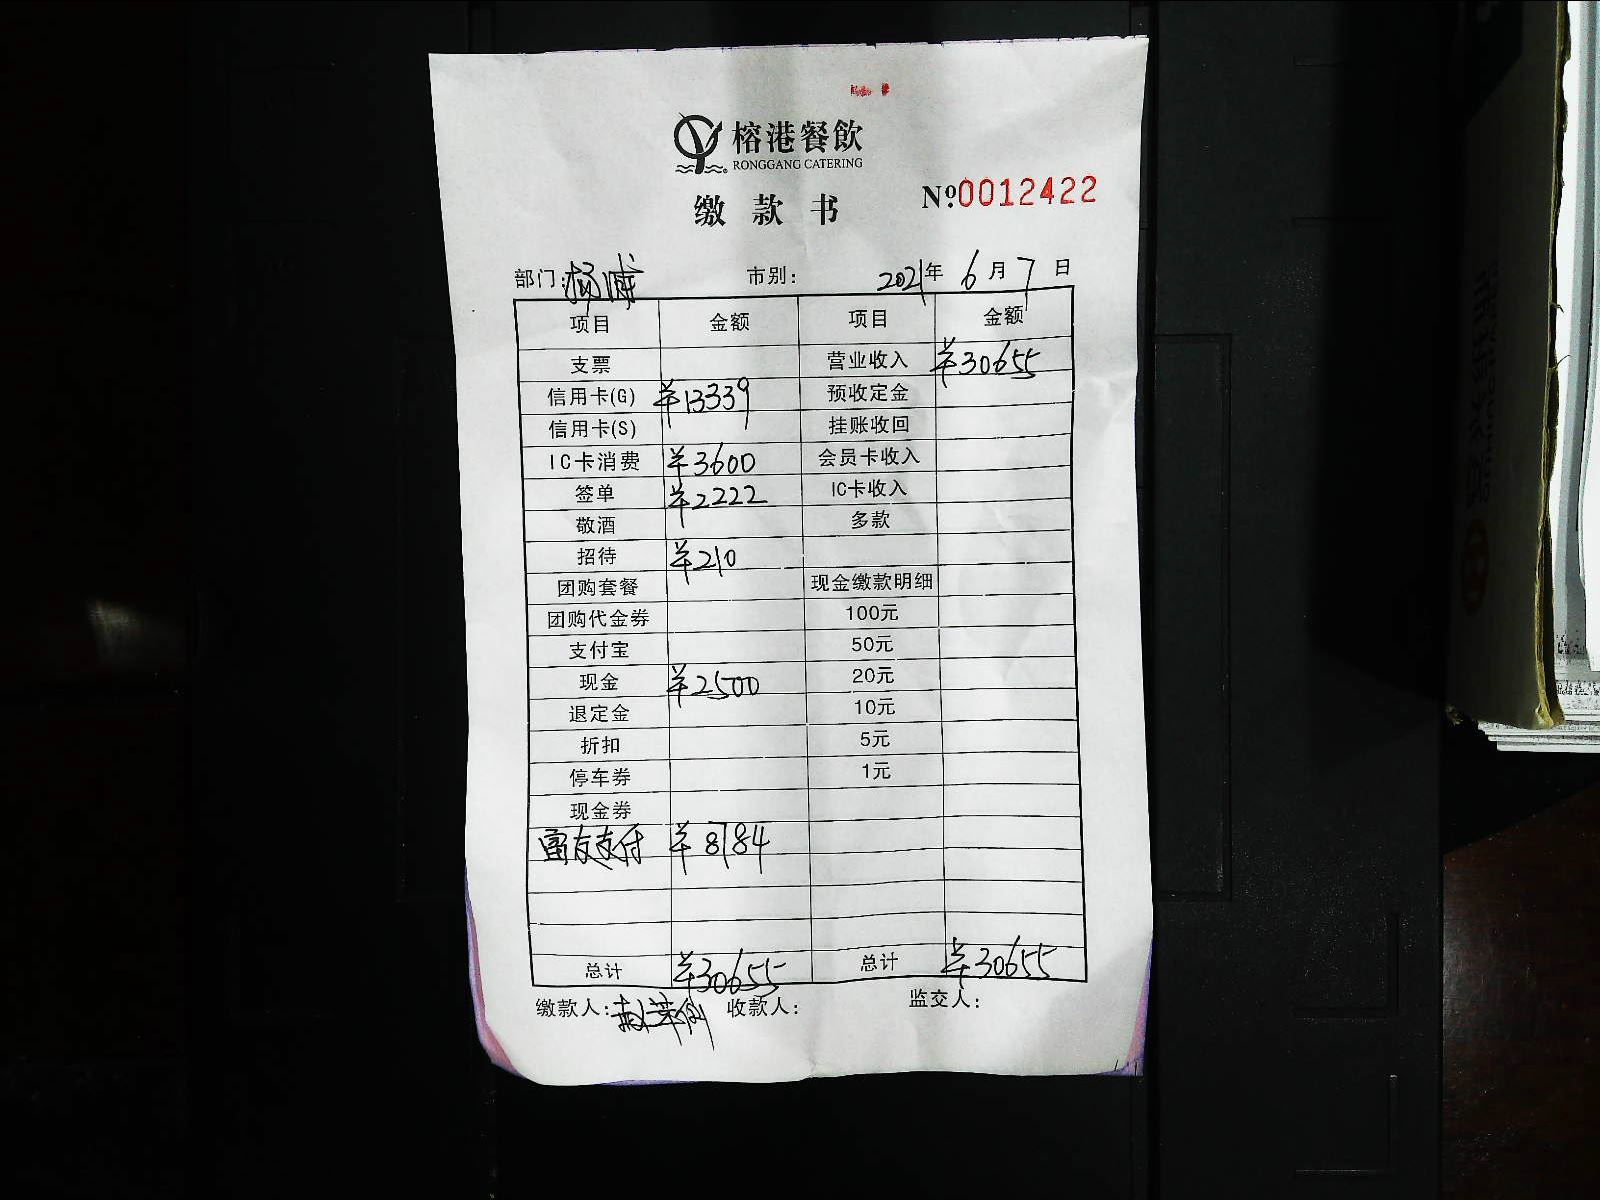 榕港餐飲
RONGGANG CATERING
缴款书
№0012422
部门:杨浦 市别: 2021年6月7日
项目 金额 项目 金额
支票 营业收入 ¥30655
信用卡(G) ¥13339 预收定金
信用卡(S) 挂账收回
IC卡消费 ¥3600 会员卡收入
签单 ¥2222 IC卡收入
敬酒 多款
招待 ¥210
团购套餐 现金缴款明细
团购代金券 100元
支付宝 50元
现金 ¥2500 20元
退定金 10元
折扣 5元
停车券 1元
现金券
富友支付 ¥8784
总计 ¥30655 总计 ¥30655
缴款人: 收款人: 监交人: